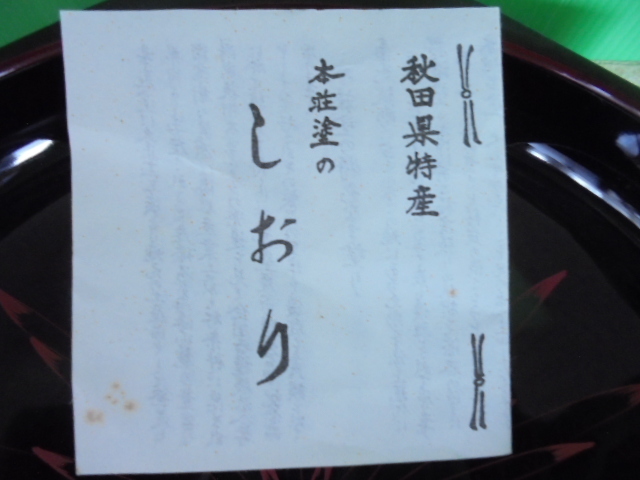 秋田県特産
本荘塗の
しおり